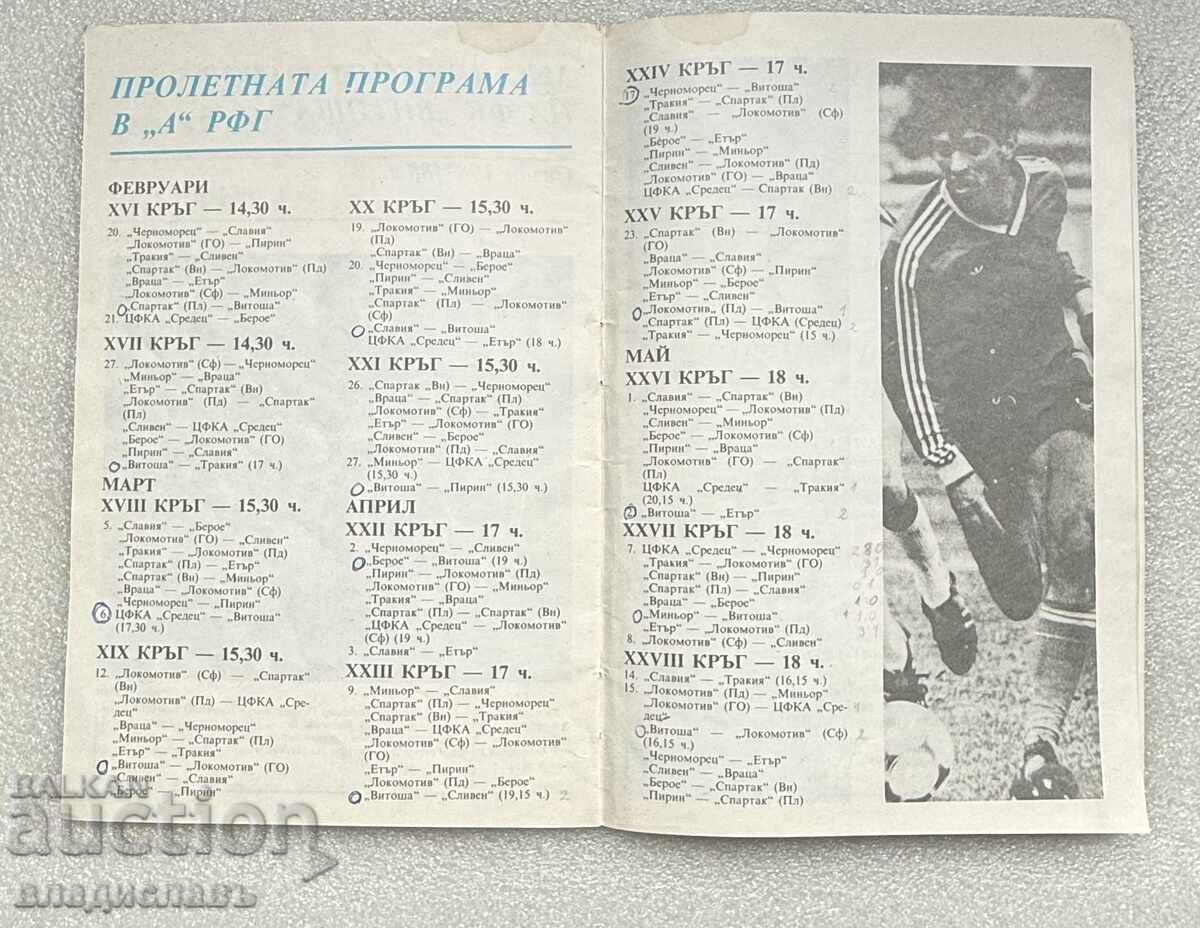 ПРОЛЕТНАТА ПРОГРАМА
В „А“ РФГ
ФЕВРУАРИ
XVI КРЪГ — 14,30 ч.
20. „Черноморец“ — „Славия“
„Локомотив“ (ГО) — „Пирин“
„Тракия“ — „Сливен“
„Спартак“ (Вн) — „Локомотив“ (Пд)
„Враца“ — „Етър“
„Локомотив“ (Сф) — „Миньор“
„Спартак“ (Пл) — „Витоша“
21. ЦФКА „Средец“ — „Берое“
XVII КРЪГ — 14,30 ч.
27. „Локомотив“ (Сф) — „Черноморец“
„Миньор“ — „Враца“
„Етър“ — „Спартак“ (Вн)
„Локомотив“ (Пд) — „Спартак“
(Пл)
„Сливен“ — ЦФКА „Средец“
„Берое“ — „Локомотив“ (ГО)
„Пирин“ — „Славия“
„Витоша“ — „Тракия“ (17 ч.)
МАРТ
XVIII КРЪГ — 15,30 ч.
5. „Славия“ — „Берое“
„Локомотив“ (ГО) — „Сливен“
„Тракия“ — „Локомотив“ (Пд)
„Спартак“ (Пл) — „Етър“
„Спартак“ (Вн) — „Миньор“
„Враца“ — „Локомотив“ (Сф)
„Черноморец“ — „Пирин“
6 ЦФКА „Средец“ — „Витоша“
(17,30 ч.)
XIX КРЪГ — 15,30 ч.
12. „Локомотив“ (Сф) — „Спартак“
(Вн)
„Локомотив“ (Пд) — ЦФКА „Сре-
дец“
„Враца“ — „Черноморец“
„Миньор“ — „Спартак“ (Пл)
„Етър“ — „Тракия“
„Витоша“ — „Локомотив“ (ГО)
„Сливен“ — „Славия“
„Берое“ — „Пирин“
XX КРЪГ — 15,30 ч.
19. „Локомотив“ (ГО) — „Локомотив“
(Пд)
„Спартак“ (Вн) — „Враца“
20. „Черноморец“ — „Берое“
„Пирин“ — „Сливен“
„Тракия“ — „Миньор“
„Спартак“ (Пл) — „Локомотив“
(Сф)
„Славия“ — „Витоша“
ЦФКА „Средец“ — „Етър“ (18 ч.)
XXI КРЪГ — 15,30 ч.
26. „Спартак „Вн) — „Черноморец“
„Враца“ — „Спартак“ (Пл)
„Локомотив“ (Сф) — „Тракия“
„Етър“ — „Локомотив“ (ГО)
„Сливен“ — „Берое“
„Локомотив“ (Пд) — „Славия“
27. „Миньор“ — ЦФКА „Средец“)
(15,30 ч.)
„Витоша“ — „Пирин“ (15,30 ч.)
АПРИЛ
XXII КРЪГ — 17 ч.
2. „Черноморец“ — „Сливен“
„Берое“ — „Витоша“ (19 ч.)
„Пирин“ — „Локомотив“ (Пд)
„Локомотив“ (ГО) — „Миньор“
„Тракия“ — „Враца“
„Спартак“ (Пл) — „Спартак“ (Вн)
ЦФКА „Средец“ — „Локомотив“
(Сф) (19 ч.)
3. „Славия“ — „Етър“
XXIII КРЪГ — 17 ч.
9. „Миньор“ — „Славия“
„Спартак“ (Пл) — „Черноморец“
„Спартак“ (Вн) — „Тракия“
„Враца“ — ЦФКА „Средец“
„Локомотив“ (Сф) — „Локомотив“
(ГО)
„Етър“ — „Пирин“
„Локомотив“ (Пд) — „Берое“
„Витоша“ — „Сливен“ (19,15 ч.) 2
XXIV КРЪГ — 17 ч.
17 „Черноморец“ — „Витоша“
„Тракия“ — „Спартак“ (Пл)
„Славия“ — „Локомотив“ (Сф)
(19 ч.)
„Берое“ — „Етър“
„Пирин“ — „Миньор“
„Сливен“ — „Локомотив“ (Пд)
„Локомотив“ (ГО) — „Враца“
ЦФКА „Средец“ — Спартак“ (Вн) 2
XXV КРЪГ — 17 ч.
23. „Спартак“ (Вн) — „Локомотив“
(ГО)
„Враца“ — „Славия“
„Локомотив“ (Сф) — „Пирин“
„Миньор“ — „Берое“
„Етър“ — „Сливен“
„Локомотив„ (Пд) — „Витоша“ 1
„Спартак“ (Пл) — ЦФКА (Средец) 2
„Тракия“ — „Черноморец“ (15 ч.)
МАЙ
XXVI КРЪГ — 18 ч.
1. „Славия“ — „Спартак“ (Вн)
„Черноморец“ — „Локомотив“ (Пд)
„Сливен“ — „Миньор“
„Берое“ — „Локомотив“ (Сф)
„Пирин“ — „Враца“
„Локомотив“ (ГО) — „Спартак“
(Пл)
ЦФКА „Средец“ — „Тракия“ 1
(20,15 ч.)
2 „Витоша“ — „Етър“ 2
XXVII КРЪГ — 18 ч.
7. ЦФКА „Средец“ — „Черноморец“
„Тракия“ — „Локомотив“ (ГО)
„Спартак“ (Вн) — „Пирин“
„Спартак“ (Пл) — „Славия“
„Враца“ — „Берое“ 1:0
„Миньор“ — „Витоша“ 1 1:0
„Етър“ — „Локомотив“ (Пд) 3:1
8. „Локомотив“ (Сф) — „Сливен“
XXVIII КРЪГ — 18 ч.
14. „Славия“ — „Тракия“ (16,15 ч.)
15. „Локомотив“ (Пд) — „Миньор“
„Локомотив“ (ГО) — ЦФКА „Сре-
дец“
„Витоша“ — „Локомотив“ (Сф) 2
(16,15 ч.)
„Черноморец“ — „Етър“
„Сливен“ — „Враца“
„Берое“ — „Спартак“ (Вн)
„Пирин“ — „Спартак“ (Пл)
БАLKAN
auction
владиславъ